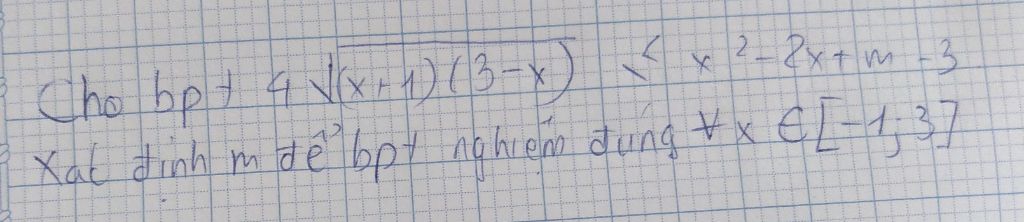 Cho bpt 4√(x+1)(3-x) ≤ x²-2x+m-3
Xác định m để bpt nghiệm đúng ∀x ∈[-1;3]